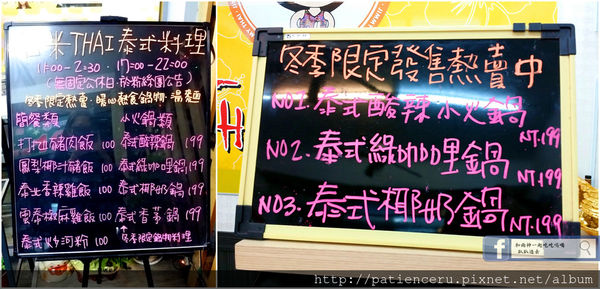 米THAI泰式料理
11:00-2:30、17:00-22:00
(無固定公休日,於粉絲團公告)
冬季限定熱賣、暖心熱食鍋物、湯麵
簡餐類 小火鍋類
打拋豬肉飯 100 泰式酸辣鍋 199
鳳梨椰汁豬飯 100 泰式綠咖哩鍋 199
泰北香辣雞飯 100 泰式椰奶鍋 199
雲泰椒麻雞飯 100 泰式香茅鍋 199
泰式炒河粉 100 冬季限定鍋物料理
冬季限定發售熱賣中
NO1. 泰式酸辣小火鍋
NT.199
NO2. 泰式綠咖哩鍋
NT.199
NO3. 泰式椰奶鍋
NT.199
f
和雨神一起吃吃喝喝
趴趴造去
http://patienceru.pixnet.net/album